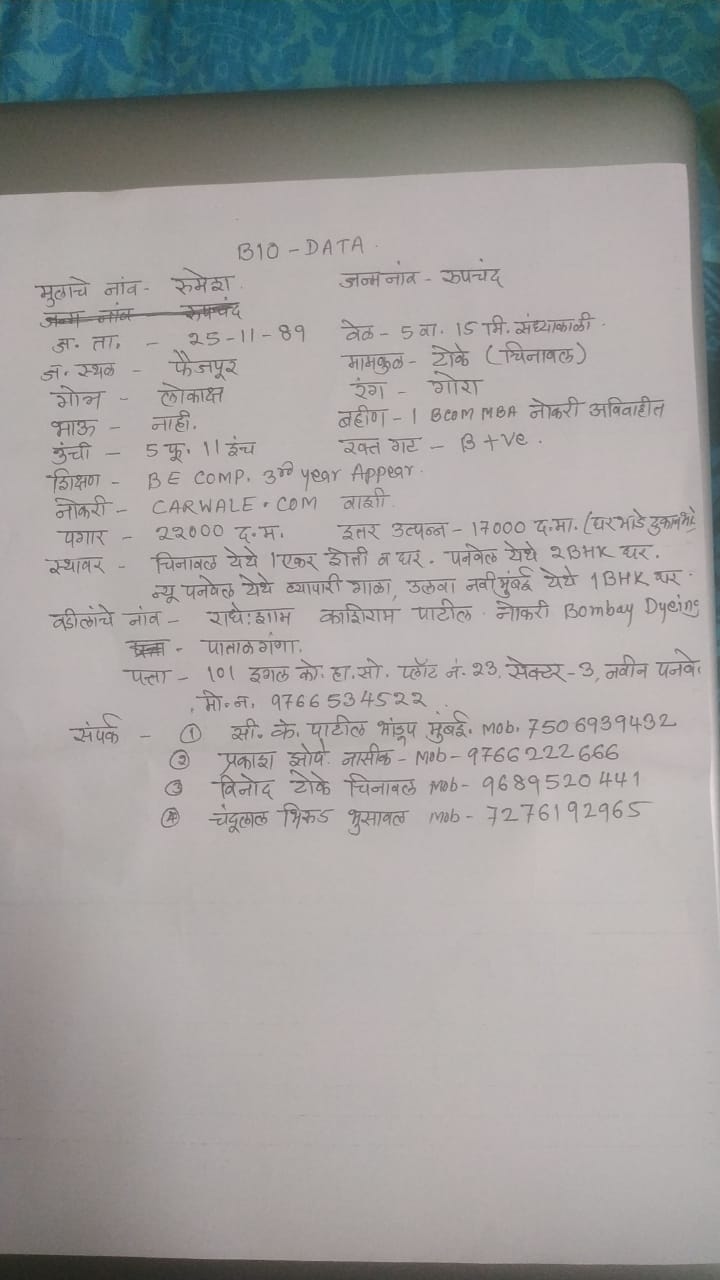 BIO-DATA.
मुलाचे नांव - रुमेश. जन्म नांव - रुपचंद
जन्म नांव रुपचंद
ज. ता. - 25-11-89 वेळ - 5 वा. 15 मि. संध्याकाळी.
ज. स्थळ - फैजपूर मामकुळ - टोके (चिनावल)
गोत्र - लोकाक्ष रंग - गोरा
भाऊ - नाही. बहीण - 1 BCOM MBA नोकरी अविवाहीत
उंची - 5 फू. 11 इंच रक्त गट - B +ve.
शिक्षण - BE COMP. 3rd year Appear.
नोकरी - CARWALE.COM वाशी.
पगार - 22000 द.म. इतर उत्पन्न - 17000 द.मा. (घरभाडे दुकानभाडे
स्थावर - चिनावल येथे 1 एकर शेती व घर. पनवेल येथे 2BHK घर.
न्यू पनवेल येथे व्यापारी गाळा, उलवा नवी मुंबई येथे 1BHK घर.
वडीलांचे नांव - राधेःशाम काशिराम पाटील. नोकरी Bombay Dyeing
पाताळगंगा.
पत्ता - 101 इगल को. हा. सो. प्लॉट नं. 23, सेक्टर-3, नवीन पनवे.
मो. न. 9766534522.
संपर्क - ① सी. के. पाटील भांडूप मुंबई. Mob. 7506939432
② प्रकाश झोपे. नासीक - Mob - 9766222666
③ विनोद टोके चिनावल Mob - 9689520441
④ चंदूलाल भिरुड भुसावल Mob - 7276192965